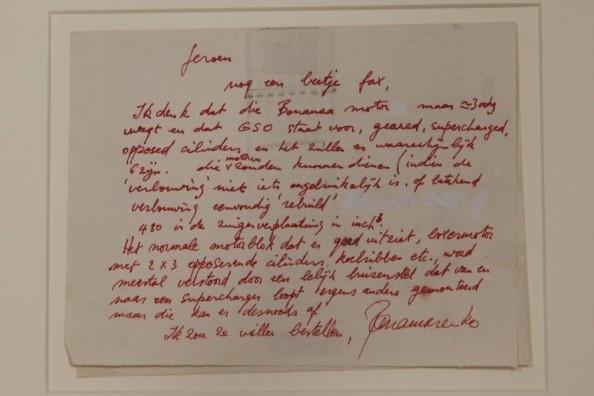 Jeroen
nog een beetje fax,
Ik denk dat die Bonanza motor maar ≈ 300 kg
weegt en dat GSO staat voor, geared, supercharged,
opposed cilinders en het zullen er waarschijnlijk
6 zijn. die motoren zouden kunnen dienen (indien de
'verbouwing' niet iets ongelukkigs is, of
verbouwing eenvoudig 'rebuild'
480 is de zuigerverplaatsing in inch³.
Het normale motorblok dat er goed uitziet, boxermotor
met 2x3 opposerende cilinders, koelribben etc., word
meestal verstoord door een lelijk buizenstel dat van en
naar een supercharger loopt ergens anders gemonteerd
maar die kan er desnoods af
Ik zou ze willen bestellen,
Panamarenko